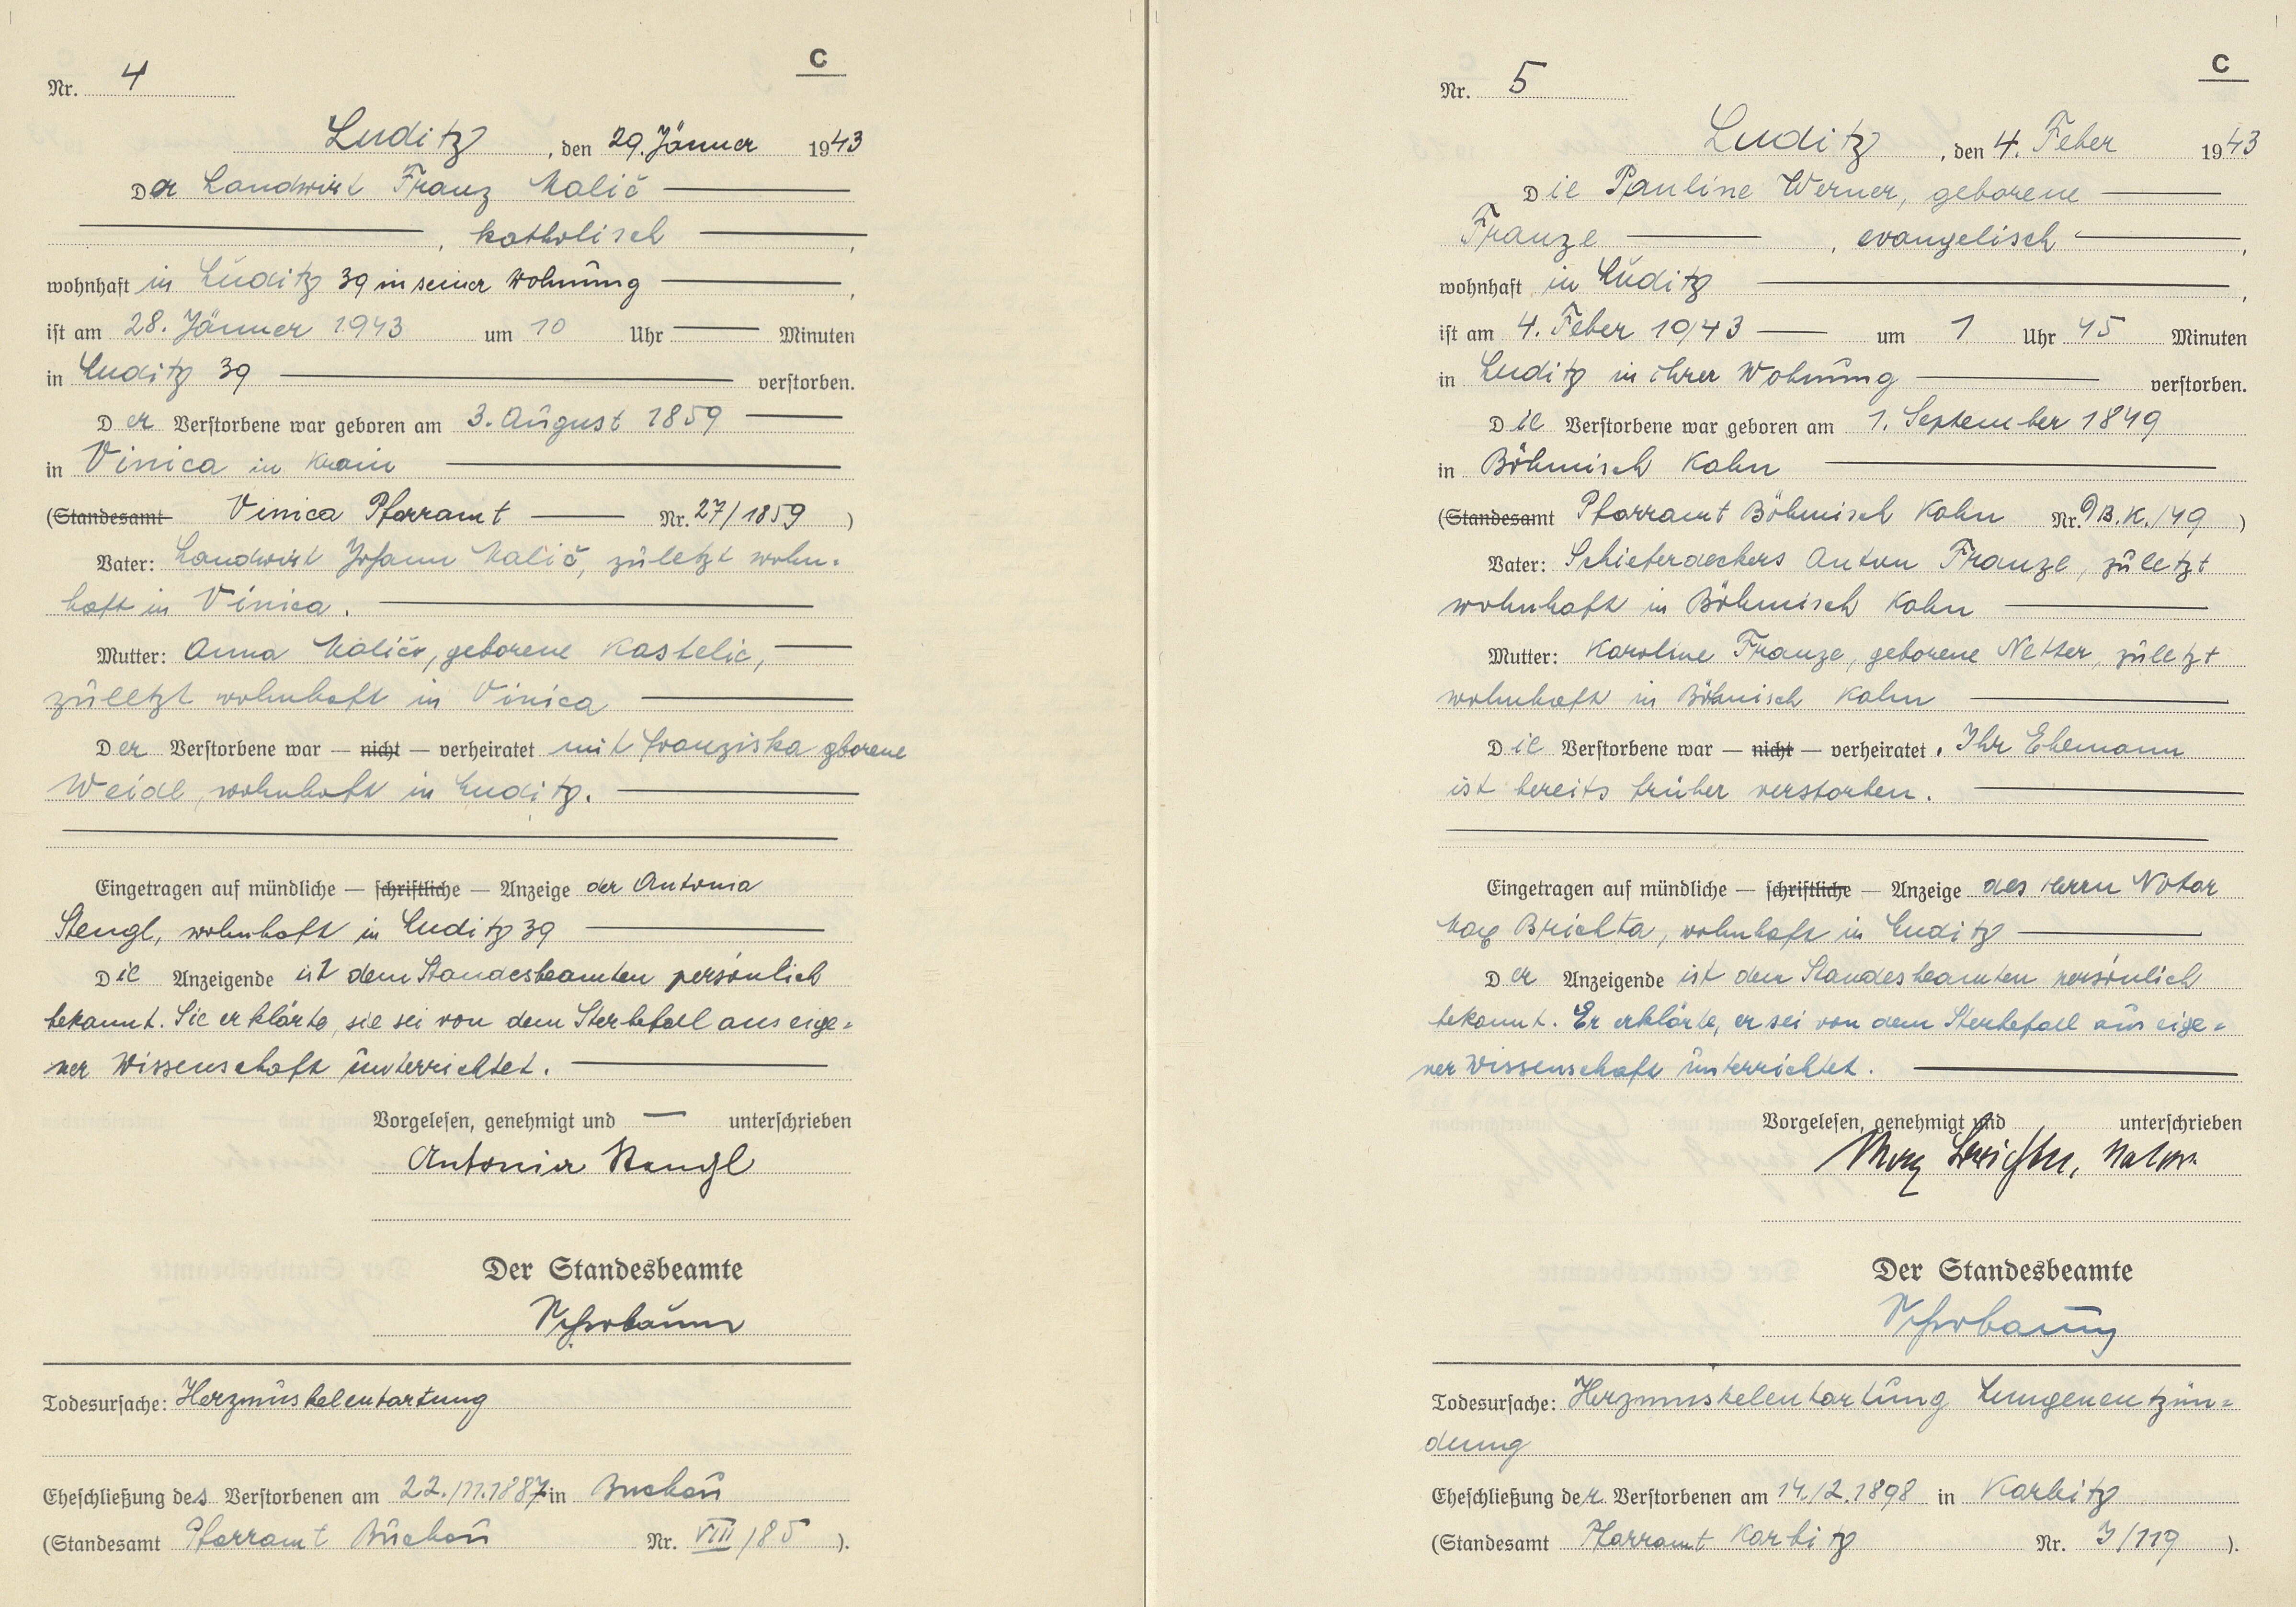 C
Nr. 4
Luditz, den 29. Jänner 1943
Der Landwirt Franz Malič
, katholisch ,
wohnhaft in Luditz 39 in seiner Wohnung ,
ist am 28. Jänner 1943 um 10 Uhr — Minuten
in Luditz 39 verstorben.
Der Verstorbene war geboren am 3. August 1859
in Vinica in Krain
(Standesamt Vinica Pfarramt — Nr. 27/1859)
Vater: Landwirt Johann Malič, zuletzt wohn-
haft in Vinica.
Mutter: Anna Malič, geborene Kastelic,
zuletzt wohnhaft in Vinica
Der Verstorbene war — nicht — verheiratet mit Franziska gborene
Weidl, wohnhaft in Luditz.
Eingetragen auf mündliche — schriftliche — Anzeige der Antonia
Stengl, wohnhaft in Luditz 39
Die Anzeigende ist dem Standesbeamten persönlich
bekannt. Sie erklärte, sie sei von dem Sterbefall aus eige=
ner Wissenschaft unterrichtet.
Vorgelesen, genehmigt und — unterschrieben
Antonia Stengl
Der Standesbeamte
Todesursache: Herzmuskelentartung
Eheschließung des Verstorbenen am 22./11.1887 in Buchau
(Standesamt Pfarramt Buchau Nr. VIII/85).
C
Nr. 5
Luditz, den 4. Feber 1943
Die Pauline Werner, geborene
Franze , evangelisch ,
wohnhaft in Luditz ,
ist am 4. Feber 1943 — um 1 Uhr 45 Minuten
in Luditz in ihrer Wohnung verstorben.
Die Verstorbene war geboren am 1. September 1849
in Böhmisch Kahn
(Standesamt Pfarramt Böhmisch Kahn Nr. 9 B.K./49)
Vater: Schieferdeckers Anton Franze, zuletzt
wohnhaft in Böhmisch Kahn
Mutter: Karoline Franze, geborene Netter, zuletzt
wohnhaft in Böhmisch Kahn
Die Verstorbene war — nicht — verheiratet. Ihr Ehemann
ist bereits früher verstorben.
Eingetragen auf mündliche — schriftliche — Anzeige des Herrn Notar
Max Brichta, wohnhaft in Luditz
Der Anzeigende ist dem Standesbeamten persönlich
bekannt. Er erklärte, er sei von dem Sterbefall aus eige=
ner Wissenschaft unterrichtet.
Vorgelesen, genehmigt und unterschrieben
Max Brichta, Notar
Der Standesbeamte
Todesursache: Herzmuskelentartung Lungenentzün=
dung
Eheschließung der Verstorbenen am 14./2.1898 in Karbitz
(Standesamt Pfarramt Karbitz Nr. J/119).